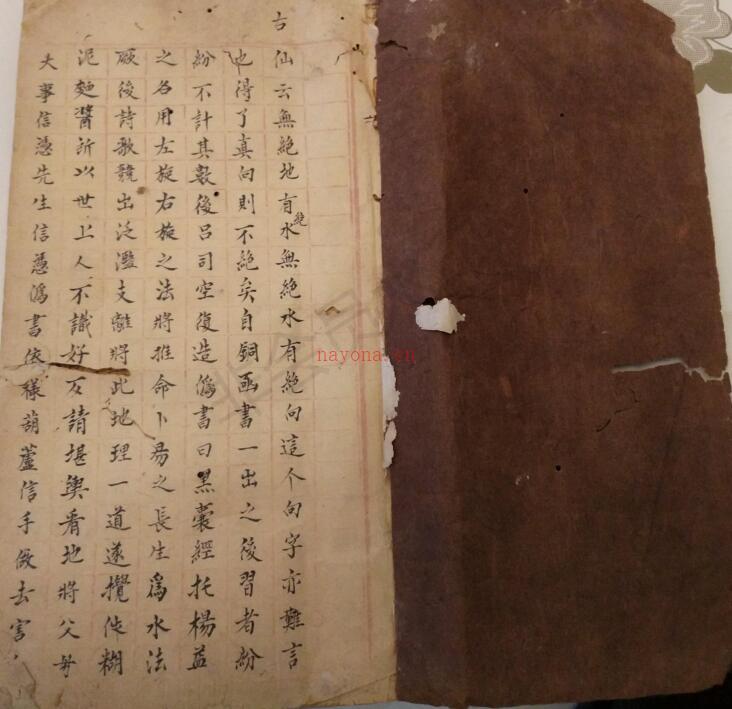 古仙云無絶地有絶水無絶水有絶向這个向字亦難言
也得了真向則不絶矣自銅函書一出之後習者紛
紛不計其数後呂司空復造僞書曰黒囊經托楊益
之名用左旋右旋之法將推命卜易之長生爲水法
厥後詩歌競出泛濫支離將此地理一道遂攪作糊
泥麵醬所以世上人不識好歹請堪輿看地將父母
大事信憑先生信憑僞書依樣葫蘆信手做去害
nayona.cn